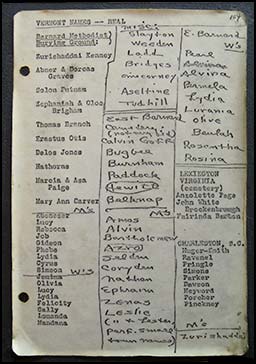 VERMONT NAMES -- REAL
Bernard Methodist
Burying Ground:
Zurishaddai Kenney
Abner & Dorcas
Graves
Solon Putnam
Zephaniah & Cloe
Brigham
Thomas Branch
Erastus Otis
Delos Jones
Hathorns
Marcia & Asa
Paige
Mary Ann Carver
M's
Ebenezer
Lucy
Rebecca
Job
Gideon
Phebe
Lydia
Cyrus
Simeon
W's
Jemima
Olivia
Lucy
Lydia
Felicity
Sally
Lomanda
Mandana
Slayton
Weeden
Ladd
Bridges
Aseltine
Tud hill
East Barnard
Cemetery
Bugbee
Burnham
Paddock
Jewitt
Belknap
M's
Amos
Alvin
Bartholomew
Azro
Selden
Coryden
Nathan
Ephraim
Zenas
Leslie
town names)
E. Barnard
W's
Pearl
Alvira
Pamela
Lydia
Lurania
Olive
Beulah
Rosantha
Rosina
LEXINGTON
VIRGINIA
(cemetery)
Anzolette Page
John White
Brockenbrough
Fairinda Barton
CHARLESTON, S.C.
Huger-Smith
Ravenel
Pringle
Simons
Parker
Dawson
Heyward
Porcher
Pinckney
M's
Zurishaddai